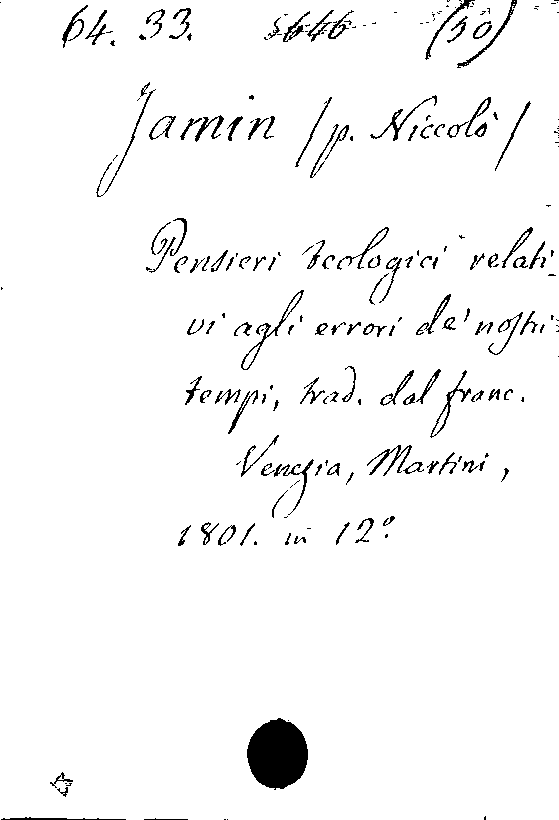 64. 33. 5646 (50)
Jamin / p. Niccolò /
Pensieri teologici relati-
vi agli errori de' nostri
tempi, trad. dal franc.
Venezia, Martini,
1801. in 12º.